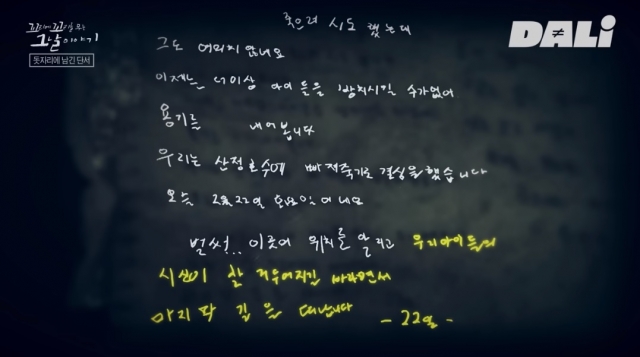 꼬리에 꼬리를 무는
그날 이야기
돗자리에 남긴 단서
DALi
죽으려 시도 했는데
그도 여의치 않네요
이제는 더이상 아이들을 방치시일 수가없어
용기를 내어봅니다
우리는 산정호수에 빠져죽기로 결심을했습니다
오늘 2월22일 토요일이네요
벌써.. 이곳에 위치를 알리고 우리아이들의
시신이 잘 거두어지길 바라면서
마지막 길을 떠납니다 -22일-